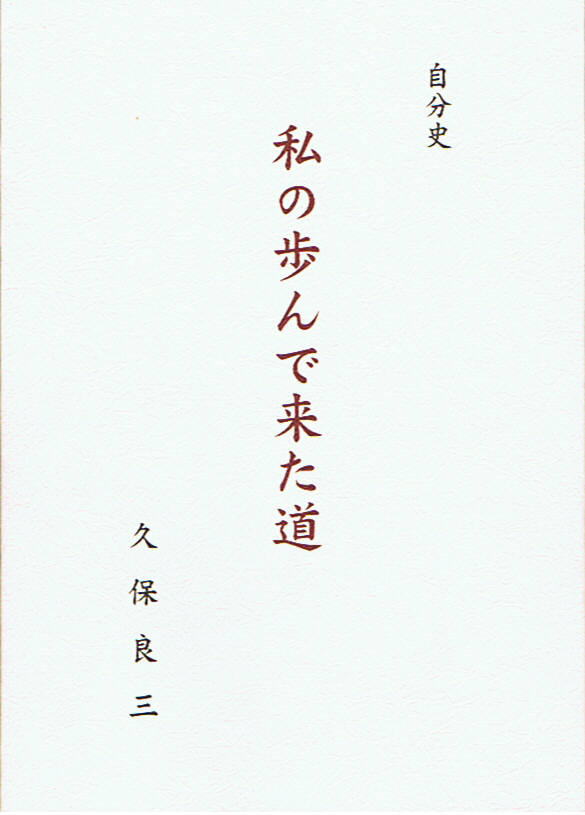 自分史
私の歩んで来た道
久保良三